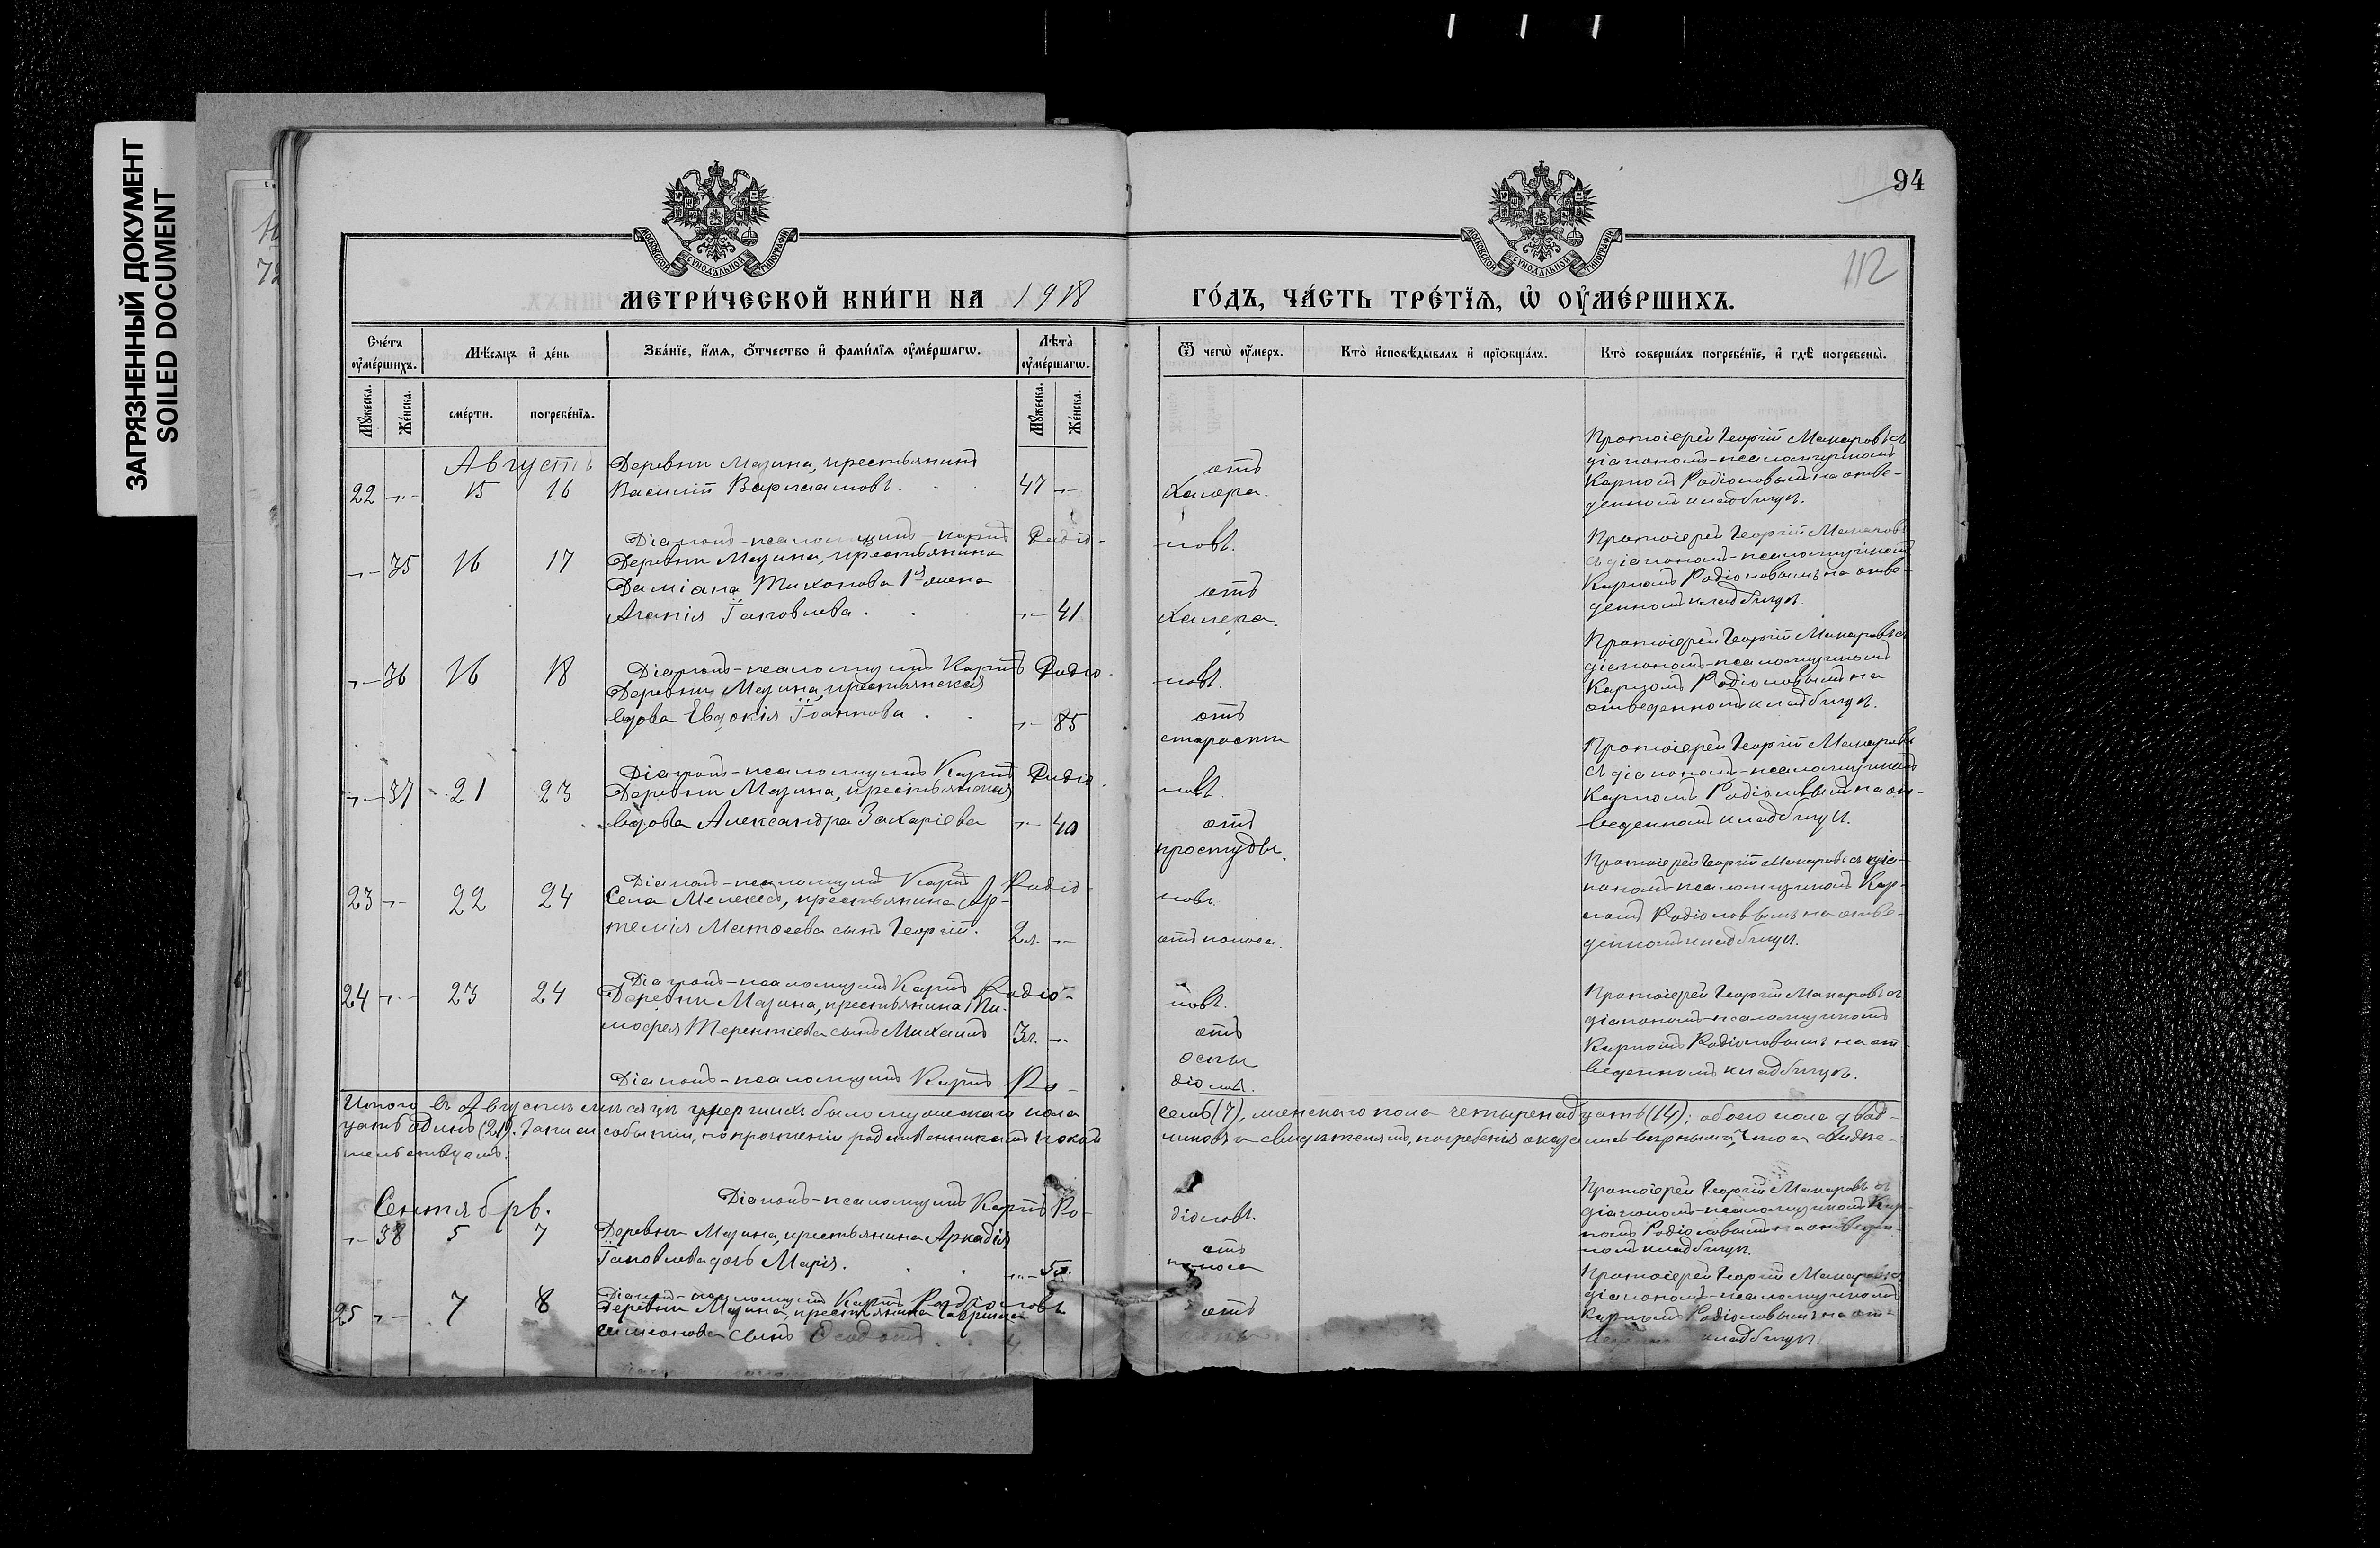 ЗАГРЯЗНЕННЫЙ ДОКУМЕНТ
SOILED DOCUMENT
94
112
МОСКОВСКОЙ СѴНОДАЛЬНОЙ ТИПОГРАФІИ
МОСКОВСКОЙ СѴНОДАЛЬНОЙ ТИПОГРАФІИ
МЕТРИ́ЧЕСКОЙ КНИ́ГИ НА 1918 ГО́ДЪ, ЧА́СТЬ ТРЕ́ТЇѦ, Ѡ҆ ОУ҆МЕ́РШИХЪ.
Сче́тъ оу҆ме́ршихъ.
Мѣ́сяцъ и҆ де́нь
Зва́нїе, и҆́мѧ, ѻ҆́тчество и҆ фами́лїѧ оу҆ме́ршагѡ.
Лѣ́та оу҆ме́ршагѡ.
Ѿ чегѡ̀ оу҆́меръ.
Кто̀ и҆сповѣ́дывалъ и҆ прїѡбща́лъ.
Кто̀ соверша́лъ погребе́нїе, и҆ гдѣ̀ погребены̀.
Мꙋ́жеска.
Же́нска.
сме́рти.
погребе́нїѧ.
Мꙋ́жеска.
Же́нска.
Августъ
Деревни Мазина, крестьянинъ
22 -"- 15 16 Василій Варлаамовъ. 47 -"-
отъ
холера.
Протоіерей Георгій Макаровъ съ
діакономъ-псаломщикомъ
Карпомъ Родіоновымъ на отве-
денномъ кладбищѣ.
Діаконъ-псаломщикъ Карпъ Родіо-
новъ.
-"- 35 16 17 Деревни Мазина, крестьянина
Даміана Тихонова 1я жена
Агапія Іаковлева. -"- 41
отъ
холера.
Протоіерей Георгій Макаровъ
съ діакономъ-псаломщикомъ
Карпомъ Родіоновымъ на отве-
денномъ кладбищѣ.
Діаконъ-псаломщикъ Карпъ Родіо-
новъ.
-"- 36 16 18 Деревни Мазина, крестьянская
вдова Евдокія Іоаннова -"- 85
отъ
старости
Протоіерей Георгій Макаровъ съ
діакономъ-псаломщикомъ
Карпомъ Родіоновымъ на
отведенномъ кладбищѣ.
Діаконъ-псаломщикъ Карпъ Родіо-
новъ.
-"- 37 21 23 Деревни Мазина, крестьянская
вдова Александра Захаріева -"- 40
отъ
простуды.
Протоіерей Георгій Макаровъ
съ діакономъ-псаломщикомъ
Карпомъ Родіоновымъ на от-
веденномъ кладбищѣ.
Діаконъ-псаломщикъ Карпъ Родіо-
новъ.
23 -"- 22 24 Села Мелекесъ, крестьянина Ар-
темія Матѳеева сынъ Георгій. 2 л. -"-
отъ поноса.
Протоіерей Георгій Макаровъ съ діа-
кономъ-псаломщикомъ Кар-
помъ Родіоновымъ на отве-
денномъ кладбищѣ.
Діаконъ-псаломщикъ Карпъ Родіо-
новъ.
24 -"- 23 24 Деревни Мазина, крестьянина Ти-
моѳея Терентіева сынъ Михаилъ 3 л. -"-
отъ
оспы
Протоіерей Георгій Макаровъ съ
діакономъ-псаломщикомъ
Карпомъ Родіоновымъ на от-
веденномъ кладбищѣ.
Діаконъ-псаломщикъ Карпъ Ро-
діоновъ.
Итого въ Августѣ мѣсяцѣ умершихъ было мужескаго пола семь (7), женскаго пола четырнадцать (14); обоего пола двад-
цать одинъ (21). Записи событій, по прочтеніи родственникамъ покойниковъ и свидѣтелямъ, погребенія оказались вѣрными, что и свидѣ-
тельствуемъ:
Діаконъ-псаломщикъ Карпъ Ро-
діоновъ.
Сентябрь.
-"- 38 5 7 Деревни Мазина, крестьянина Аркадія
Іаковлева дочь Марія. -"- 5 л.
отъ
поноса
Протоіерей Георгій Макаровъ съ
діакономъ-псаломщикомъ Кар-
помъ Родіоновымъ на отведен-
номъ кладбищѣ.
Діаконъ-псаломщикъ Карпъ Родіоновъ
25 -"- 7 8 Деревни Мазина, крестьянина Гавріила
Симеонова сынъ
отъ
Протоіерей Георгій Макаровъ съ
діакономъ-псаломщикомъ
Карпомъ Родіоновымъ на от-
кладбищѣ.